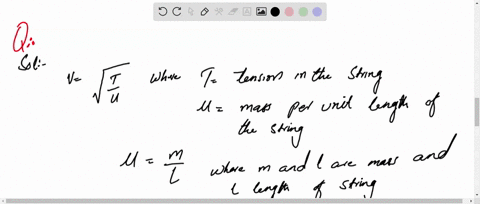 Q:-
Sol:-
v = √(T/u) where T = tension in the string
u = mass per unit length of
the string
u = m/L where m and l are mass and
l length of string